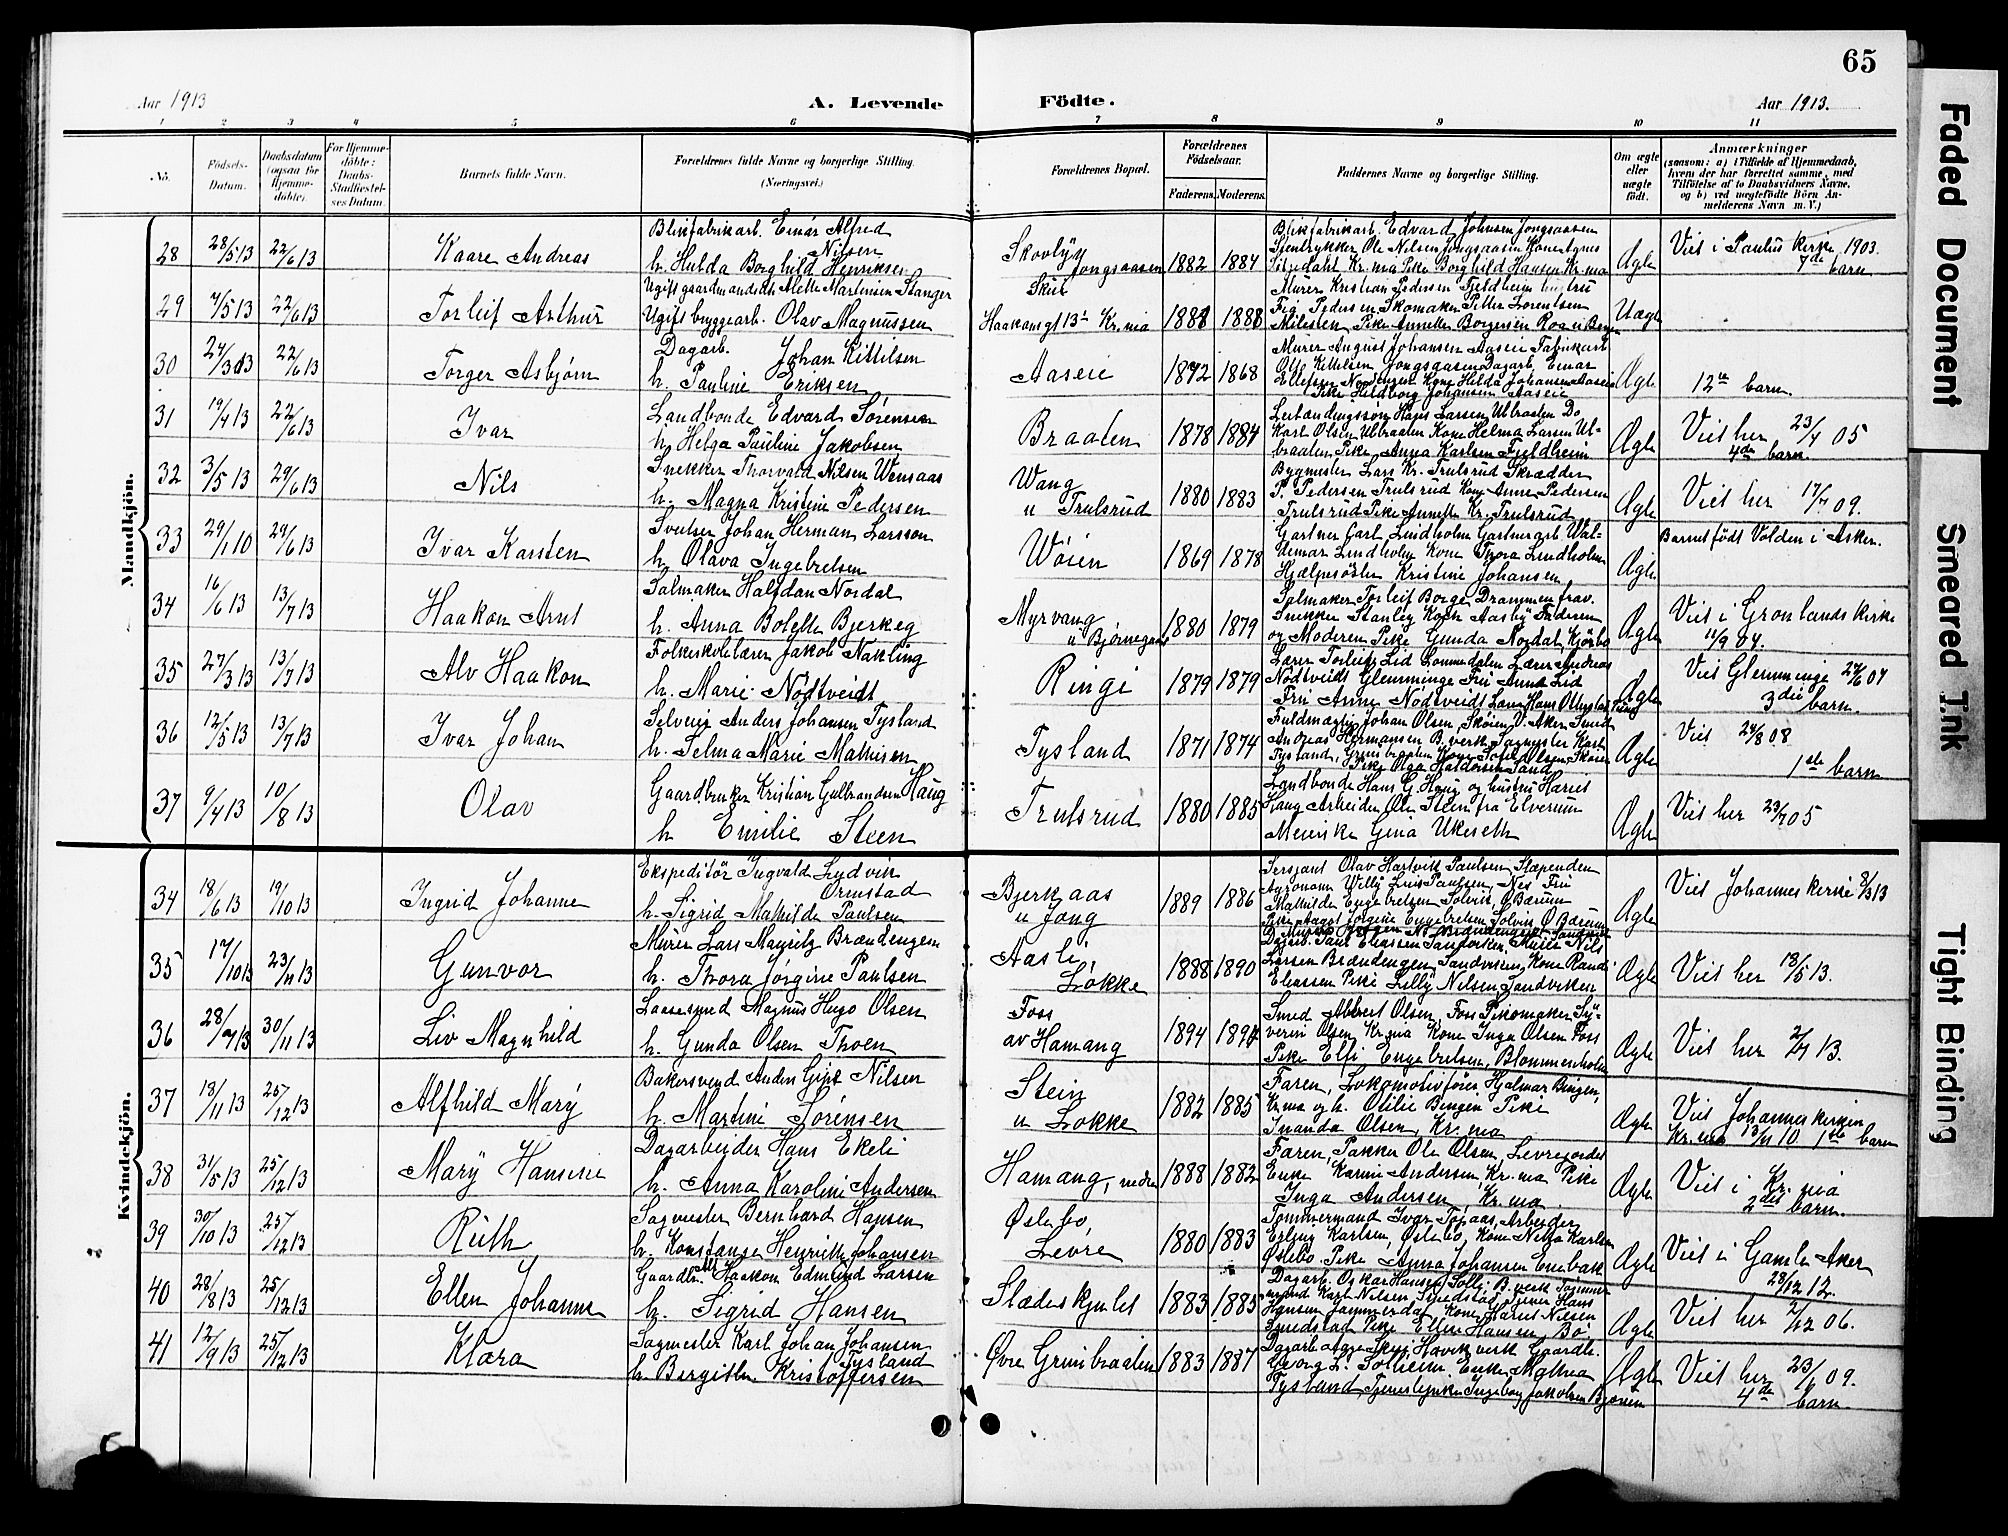 65
Aar 1913
A. Levende
Födte.
Aar 1913.
1 2 3 4 5 6 7 8 9 10 11
No.
Födsels-Datum.
Daabsdatum (ogsaa for Hjemmedöbte).
For Hjemmedöbte: Daabs-Stadfæstelses Datum.
Barnets fulde Navn.
Forældrenes fulde Navne og borgerlige Stilling.
(Næringsvei.)
Forældrenes Bopæl.
Forældrenes Födselsaar.
Faderens. Moderens.
Faddernes Navne og borgerlige Stilling.
Om ægte eller uægte födt.
Anmærkninger
(saasom: a) i Tilfælde af Hjemmedaab, hvem der har forrettet samme, med Tilföielse af to Daabsvidners Navne, og b) ved uægtefödte Börn Anmelderens Navn m. V.)
Mandkjön.
28 28/5 13 22/6 13 Kaare Andreas
Blikfabrikarb. Einar Alfred Nilsen
h. Hulda Borghild Henriksen
Skovly Jongsaasen 1882 1884
Blikfabrikarb. Edvard Johnsen Jongsaasen
Stentrykker Ole Nilsen Jongsaasen Kone Agnes
Kr.nia Pike Borghild Hansen Kr.nia
Ægte
Viet i Paulus Kirke 1903.
7de barn
29 7/5 13 22/6 13 Torleif Arthur
Ugift gaardmandsdtr. Alette Martinsen Stanger
Ugift bryggearb. Olav Magnussen
Skui
Haakonsgt 13 Kr.nia 1888 1888
Murer Kristian Pedersen Fjeldheim hustru
Pedersen Skomaker Petter Lorentsen
Milesten Pike Annette Borgersen Roa i
Uægte
30 24/3 13 22/6 13 Torger Asbjørn
Dagarb. Johan Kittilsen
h. Pauline Eriksen
Aaseie 1872 1868
Murer August Johansen Aaseie Fabrikarb
Ole Kittilsen Jongsaasen Dagarb. Einar
Ellefsen Kone Hilda Johansen Aaseie
Pike Hildborg Johansen Aaseie
Ægte
12te barn.
31 19/4 13 22/6 13 Ivar
Landbonde Edvard Sörensen
h. Helga Pauline Jakobsen
Braaten 1878 1884
Hans Larsen Ulbraaten Do
Karl Olsen Ulbraaten Kone Helma Larsen Ul-
braaten Pike Anna Karlsen Fjeldheim
Ægte
Viet her 23/4 05
4de barn.
32 3/5 13 29/6 13 Nils
Snekker Thorvald Nilsen Wensaas
h. Magna Kristine Pedersen
Wang
u Trulsrud 1880 1883
Bygmester Lars Kr. Trulsrud Skrædder
P. Pedersen Trulsrud Kone Anne Pedersen
Trulsrud Pike Annette Kr. Trulsrud
Ægte
Viet her 17/7 09.
33 29/1 10 29/6 13 Ivar Karsten
Sveitser Johan Herman Larsson
h. Olava Ingebretsen
Wöien 1869 1878
Gartner Carl Lindholm Gartnerarb Wal-
demar Lindholm Kone Thora Lindholm
Hjælpesöster Kristine Johansen
Ægte
Barnet födt Volden i Asker.
34 16/6 13 13/7 13 Haakon Arnt
Salmaker Halfdan Nordal
h. Anna Bolette Bjerkeg
Myrvang
u Bjørnegaard 1880 1879
Salmaker Torleif Borge Drammen frav.
Snekker Stanley Aasby Faderen
og Moderen Pike Gunda Nordal Kjörbo
Ægte
Viet i Grønlands kirke
11/9 04.
35 27/3 13 13/7 13 Alv Haakon
Folkeskolelærer Jakob Nakling
h. Marie Nödtveidt
Ringi 1879 1879
Lærer Torleif Lid Lommedalen Lærer Andreas
Nödtveidt Glemminge Fru Anna Lid
Fru Anne Nödtveidt
Ægte
Viet Glemminge 24/6 07
3die barn.
36 12/5 13 13/7 13 Ivar Johan
Selveier Anders Johansen Tysland
h. Selma Marie Mathisen
Tysland 1871 1874
Fuldmægtig Johan Olsen, Sköien V. Aker Smed
Andreas Hermansen B.verk Sagmester Karl
Tysland, Grinibraaten Kone Sofie Olsen Sköien
Pike Olga Haldorsen Sand
Ægte
Viet 24/8 08
1ste barn
37 9/4 13 10/8 13 Olav
Gaardbruker Kristian Gulbrandsen Haug
h Emilie Steen
Trulsrud 1880 1885
Landbonde Hans G. Haug og hustru Hariet
Haug Arbeider Ole Steen fra Elverum
Meierske Gina Ukeseth
Ægte
Viet her 23/7 05
Kvindekjön.
34 18/6 13 19/10 13 Ingrid Johanne
Ekspeditör Ingvald Ludvik Ormstad
h. Sigrid Mathilde Paulsen
Bjerkaas
u Jong 1889 1886
Sersjant Olav Hartvik Paulsen, Slæpenden
Agronom Willy Paulsen, Nes Fru
Mathilde Engebretsen Solvik, Ø Bærum
Pike Aagot Jørgine Engebretsen Solvik Ø Bærum
Ægte
Viet Johannes kirke 8/3 13
35 17/10 13 23/11 13 Gunvor
Murer Lars Mauritz Brændengen
h. Thora Jørgine Paulsen
Aasli,
Løkke 1888 1890
Dagarb. Paul Eliassen Sandviken, Murer Nils
Larsen Brændengen, Sandviken, Kone Randi
Eliassen Pike Lilly Nilsen Sandviken
Ægte
Viet her 18/5 13.
36 28/7 13 30/11 13 Liv Magnhild
Laasesmed Magnus Hugo Olsen
h. Gunda Olsen Thoen
Foss
av Hamang 1894 1894
Smed Albert Olsen, Foss Skomaker Sy-
verin Olsen Kr.nia Kone Inga Olsen Foss
Pike Elfi Engebretsen, Blommenholm
Ægte
Viet her 2/7 13.
37 13/11 13 25/12 13 Alfhild Mary
Bakersvend Anders Gift Nilsen
h. Martine Sörensen
Stein
u Løkke 1882 1885
Faren, Lokomotivförer Hjalmar Bingen,
Kr.nia og h. Otilie Bingen Pike
Inanda Olsen, Kr.nia
Ægte
Viet Johannes kirken
Kr.nia 13/11 10 1ste barn
38 31/5 13 25/12 13 Mary Hansine
Dagarbeider Hans Ekeli
h. Anna Karoline Andersen
Hamang, nedre 1888 1882
Faren, Pakker Ole Olsen, Levregordet
Enke Karin Andersen, Kr.nia Pike
Inga Andersen Kr.nia
Ægte
Viet i Kr.nia
2det barn.
39 30/10 13 25/12 13 Ruth
Sagmester Bernhard Hansen
h. Konstanse Henriette Johansen
Østebo,
Levre 1880 1883
Tömmermand Ivar Topaas, Arbeider
Erling Karlsen, Østebo, Kone Netta Karlsen
Østebo Pike Anna Johansen Enebak
Ægte
Viet i Gamle Aker
28/12 12.
40 28/8 13 25/12 13 Ellen Johanne
Gaardbr. Haakon Edmund Larsen
h. Sigrid Hansen
Slædeskjulet 1883 1885
Dagarb. Oskar Hansen Solli, B.verk Tömmer-
mand Karl Nilsen Smedstad, Hans
Hansen Jammerdal Kone Harriet Nilsen
Smedstad Pike Ellen Hansen, Bö
Ægte
Viet her 2/12 06.
41 12/9 13 25/12 13 Klara
Sagmester Karl Johan Johansen Tysland
h Bergitte Kristoffersen
Øvre Grinibraaten 1883 1887
Dagarb Aage Skui Høvik verk Gaardbr.
Georg L. Solheim Enke Mathea
Tysland Tjenestepike Ingeborg Jakobsen Bjørum
Ægte
Viet her 23/1 09.
4de barn.
Faded Document
Smeared Ink
Tight Binding